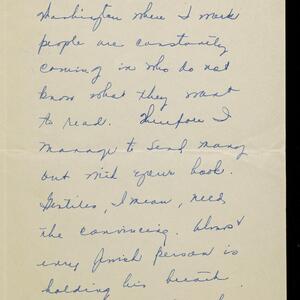 Washington where I work
people are constantly
coming in who do not
know what they want
to read. Therefore I
manage to send many
out with your book.
Gentiles, I mean, need
the convincing. Almost
every Jewish person is
holding his breath